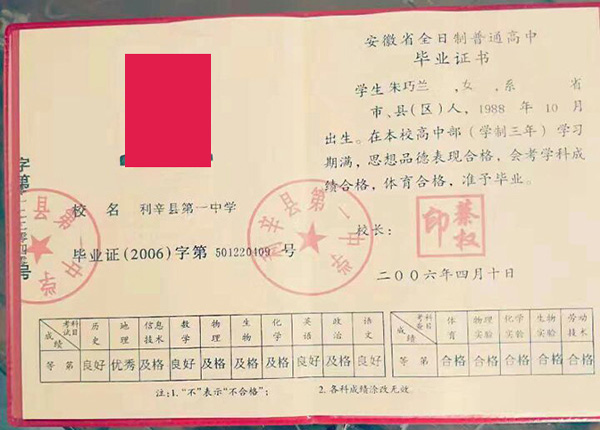 安徽省全日制普通高中
毕业证书
学生 朱巧兰 ,女 ,系 省
市、县(区)人, 1988 年 10 月
出生。在本校高中部(学制三年)学习
期满,思想品德表现合格,会考学科成
绩合格,体育合格,准予毕业。
校长:
蔡权
印
二〇〇六年四月十日
校 名 利辛县第一中学
毕业证(2006)字第 501220469 号
利辛县第一中学
字第
号
县第
中学
考试科目 历史 地理 信息技术 数学 物理 生物 化学 英语 政治 语文
成绩
等第 良好 优秀 及格 良好 及格 及格 及格 良好 良好 良好
考查科目 体育 物理实验 化学实验 生物实验 劳动技术
成绩
等第 合格 合格 合格 合格 合格
注:1."不"表示"不合格"; 2.各科成绩涂改无效。